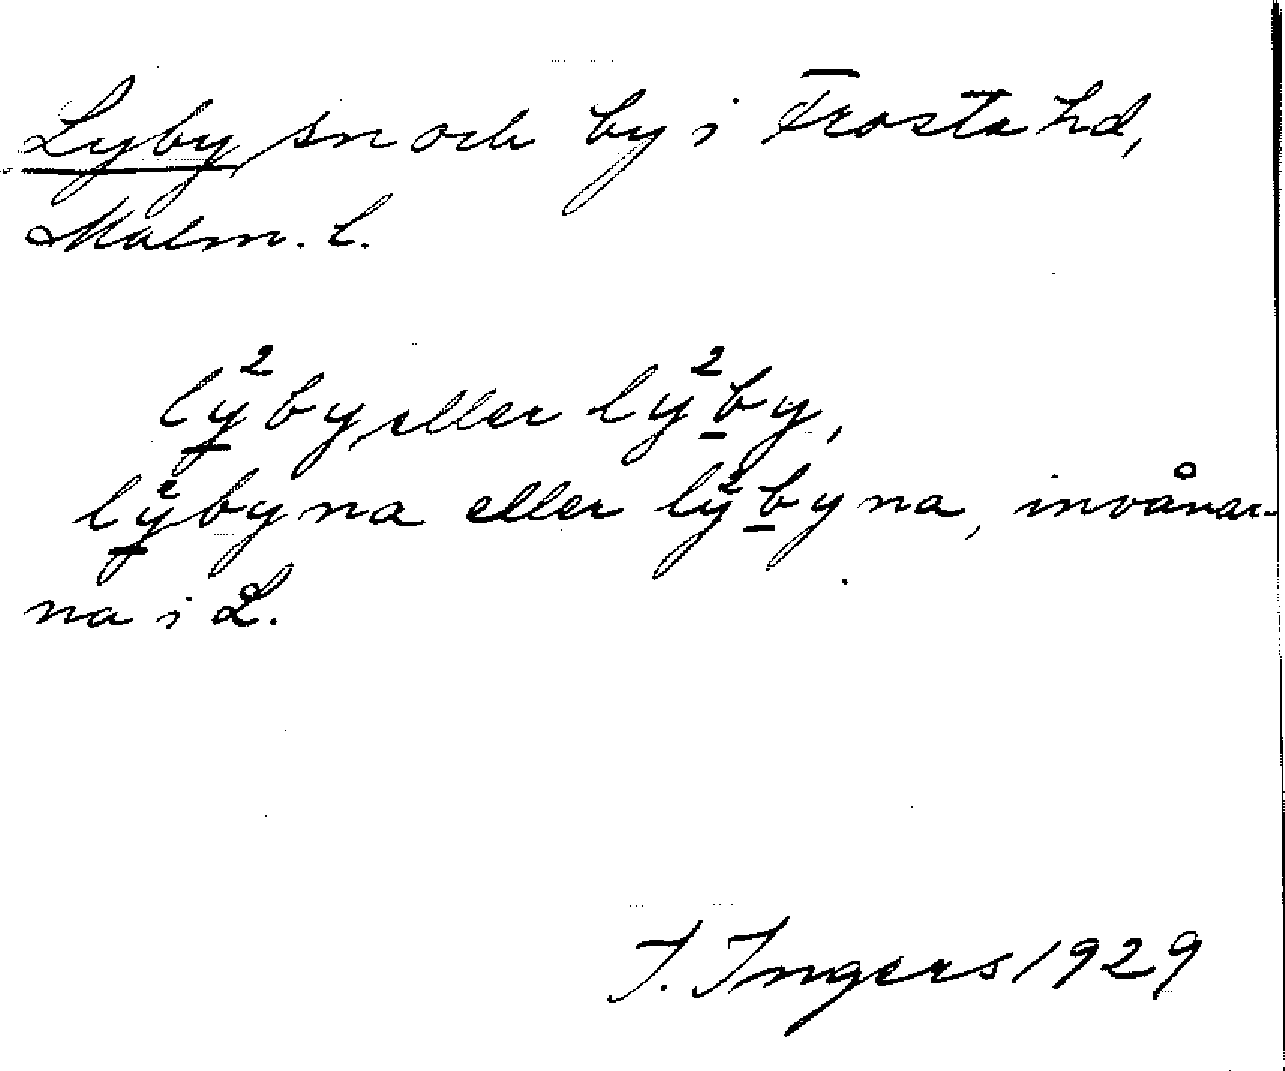 Lyby sn och by i Frosta hd,
Malm. l.
ly̲²by eller ly²b̲y,
ly̲²byna eller ly²b̲yna, invånar-
na i L.
I. Ingers 1929